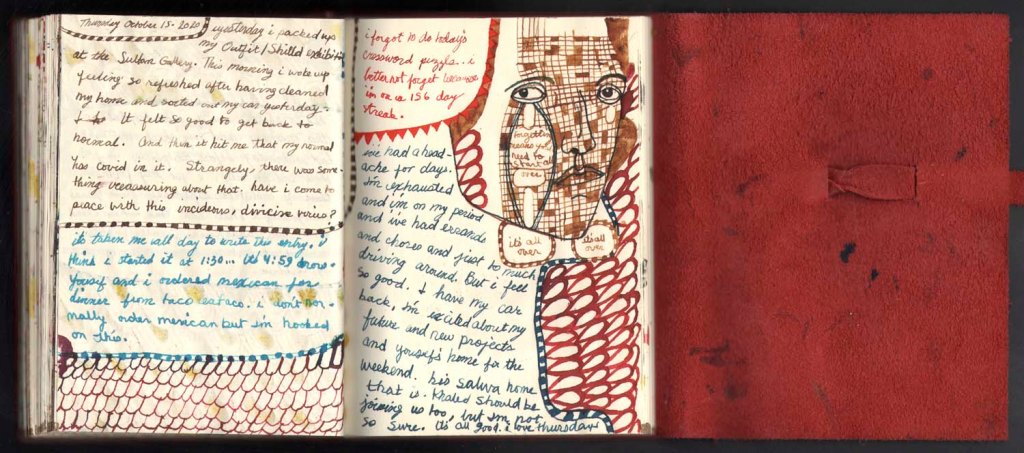 Thursday October 15. 2020
yesterday i packed up
my Outfit/Skilld exhibiti
at the Sultan Gallery. This morning i woke up
feeling so refreshed after having cleaned
my home and sorted out my car yesterday.
It felt so good to get back to
normal. And then it hit me that my normal
has covid in it. Strangely, there was some-
thing reassuring about that. have i come to
peace with this inciderous, divicive virus?
its taken me all day to write this entry. i
think i started it at 1:30... its 4:59 now.
Yousif and i ordered mexican for
dinner from taco eataco. i don't nor-
mally order mexican but im hooked
on this.
i forgot to do today's
crossword puzzle.. i
better not forget because
im on a 156 day
streak.
ive had a head-
ache for days.
I'm exhausted
and im on my period
and i've had errands
and chores and just to much
driving around. But i feel
so good. I have my car
back, I'm excited about my
future and new projects
and yousif's home for the
weekend. his salwa home
that is. Khaled should be
joining us too, but I'm not
so sure. Its all good. i love thursdays
forgetting
means you
need to
start all
over
it's all
over
its all
over